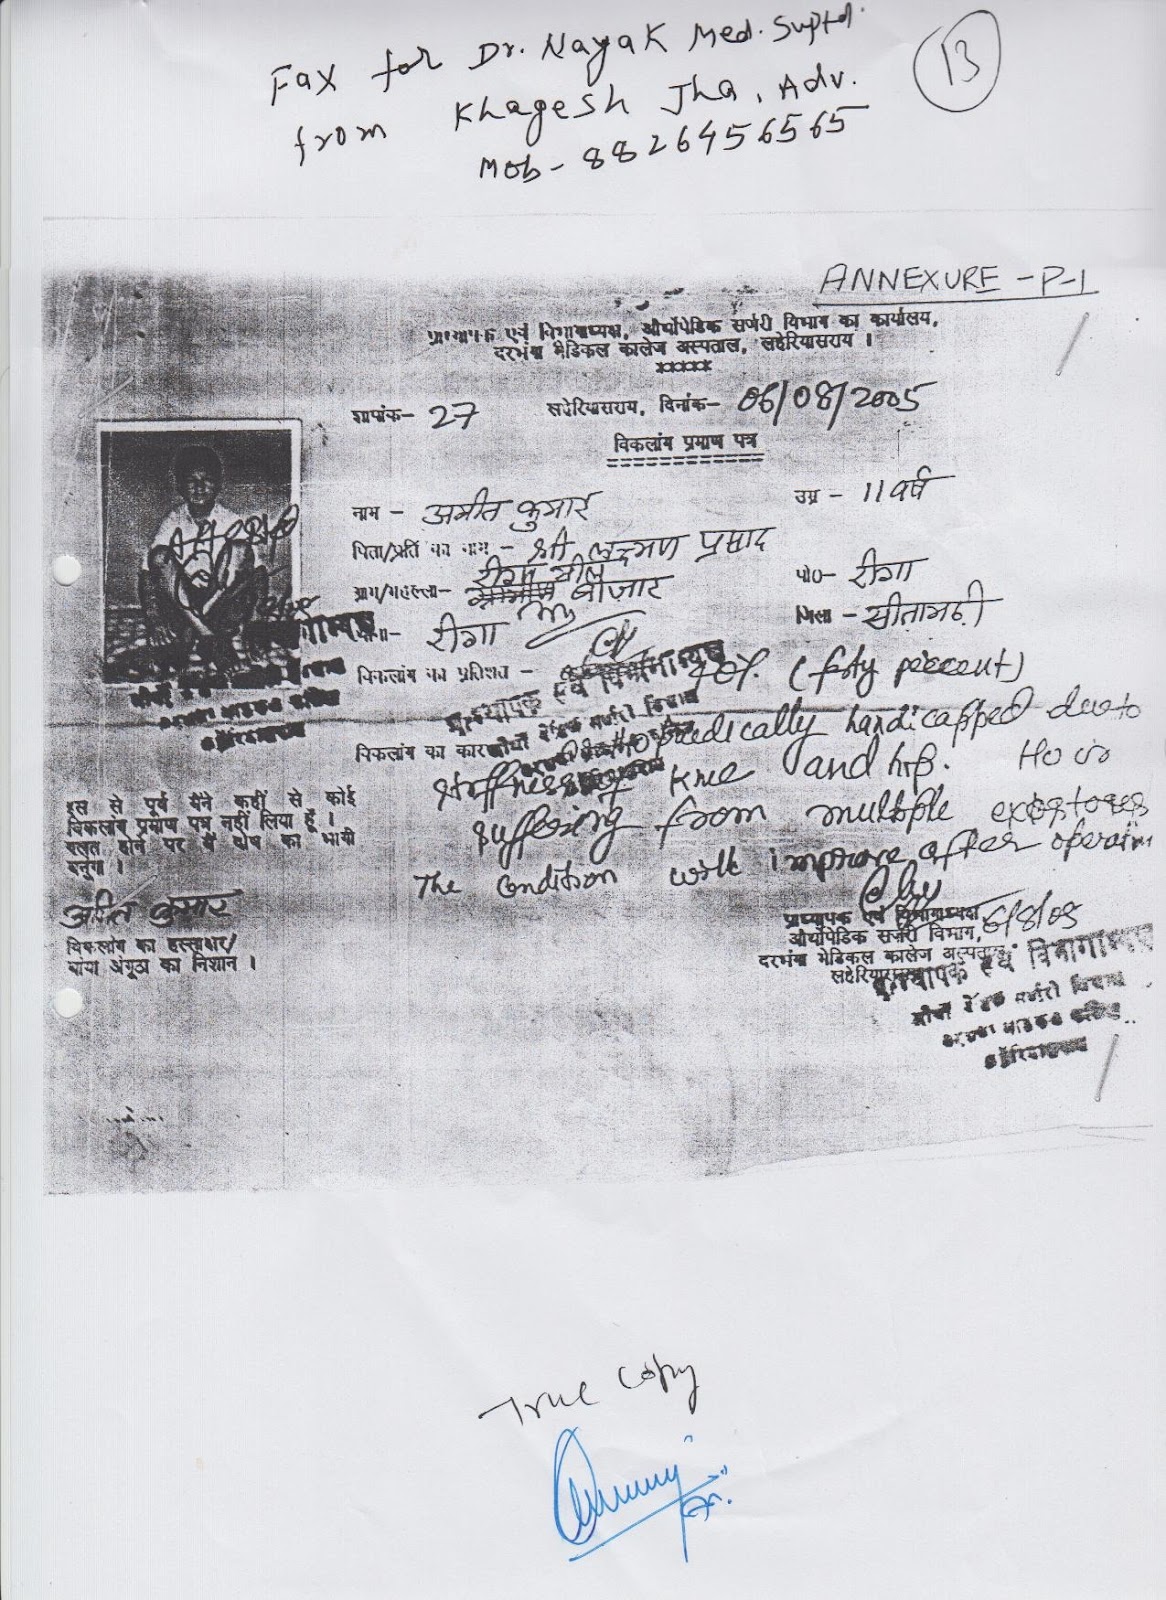 Fax for Dr. Nayak Med. Suptd.
from Khagesh Jha, Adv.
Mob- 8826456565
13
ANNEXURE - P-1
प्राध्यापक एवं विभागाध्यक्ष, और्थोपेडिक सर्जरी विभाग का कार्यालय,
दरभंगा मेडिकल कालेज अस्पताल, लहेरियासराय ।
*****
ज्ञापांक- 27 लहेरियासराय, दिनांक- 06/08/2005
विकलांग प्रमाण पत्र
नाम - अमीत कुमार उम्र - 11 वर्ष
पिता/प्रति का नाम - श्री लक्ष्मण प्रसाद
रीगा मील
ग्राम/महल्ला- बाजार पो0- रीगा
थाना- रीगा जिला - सीतामढ़ी
विकलांग का प्रतिशत - 40% (forty percent)
विकलांग का कारण Orthopaedically handicapped due to
stiffness of knee and hip. He is
suffering from multiple exostoses
The condition will improve after operation
इस से पूर्व मैंने कहीं से कोई
विकलांग प्रमाण पत्र नहीं लिया हूँ ।
गलत होने पर मैं दोष का भागी
बनुंगा ।
अमीत कुमार
विकलांग का हस्ताक्षर/
बायां अंगूठा का निशान ।
प्राध्यापक एवं विभागाध्यक्ष 6/8/05
और्थोपेडिक सर्जरी विभाग,
दरभंगा मेडिकल कालेज अस्पताल
लहेरियासराय
प्राध्यापक एवं विभागाध्यक्ष
True Copy